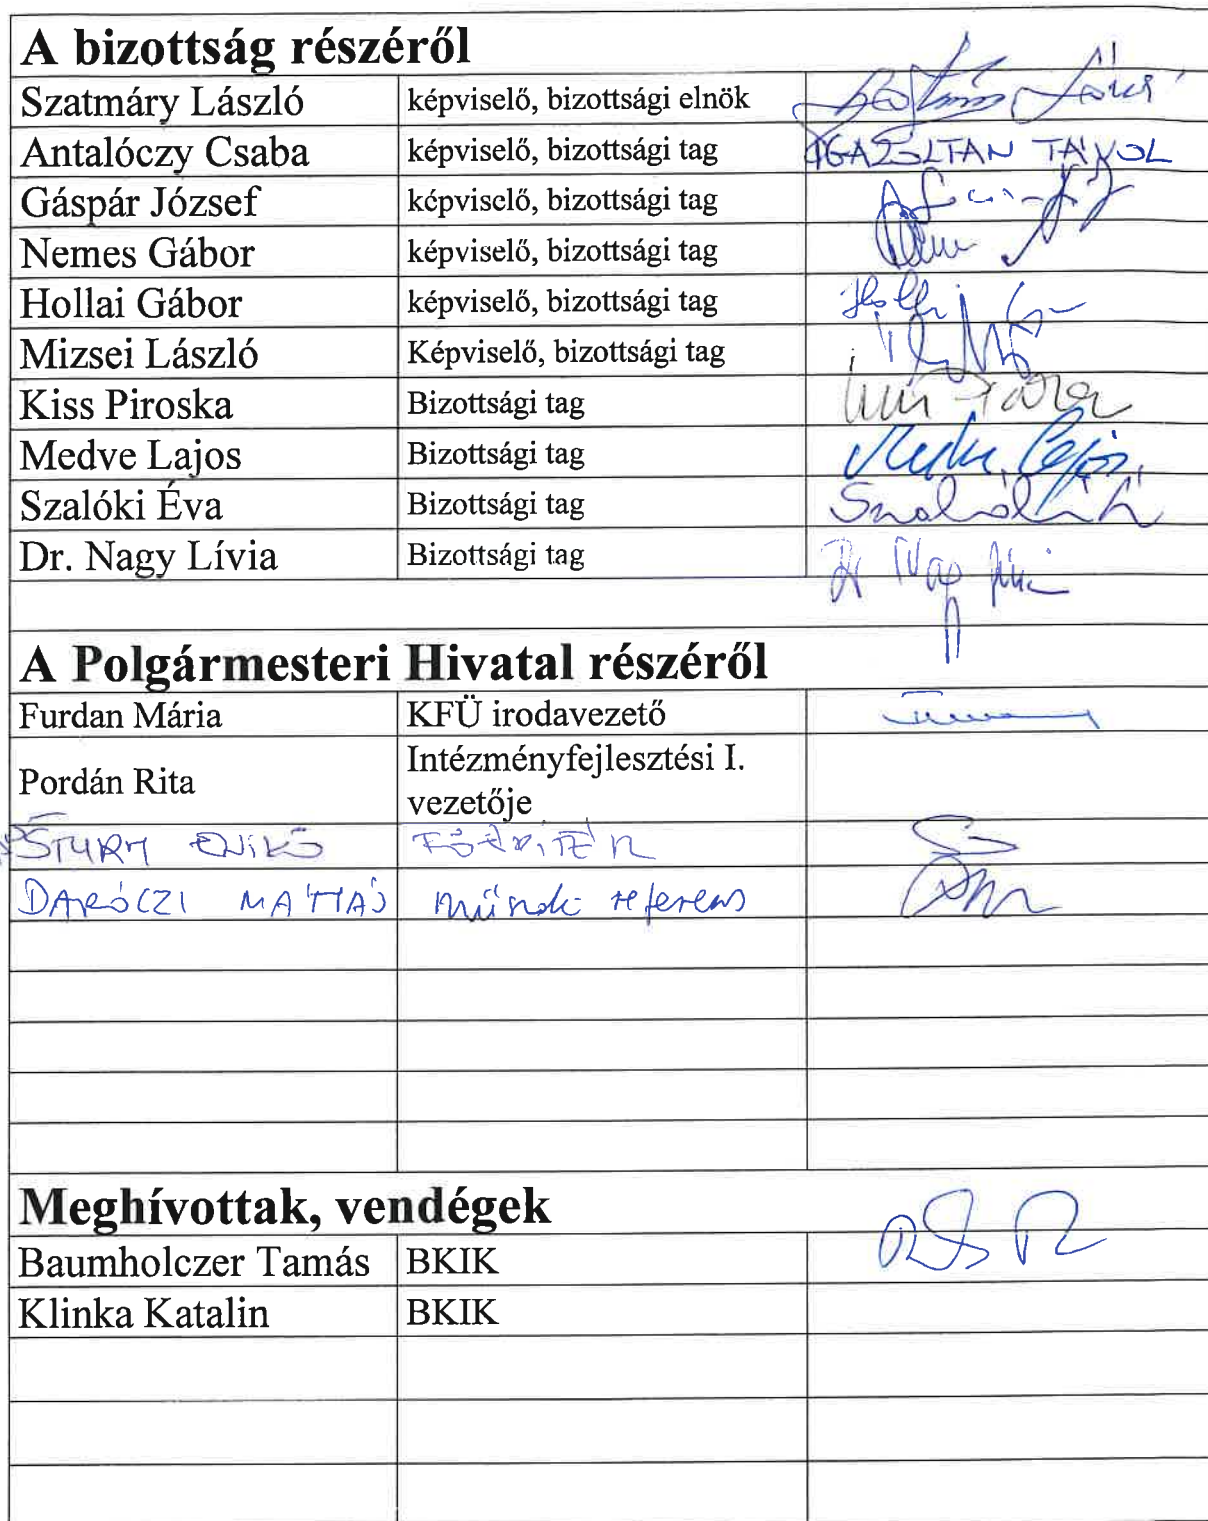 A bizottság részéről
Szatmáry László képviselő, bizottsági elnök
Antalóczy Csaba képviselő, bizottsági tag IGAZOLTAN TÁVOL
Gáspár József képviselő, bizottsági tag
Nemes Gábor képviselő, bizottsági tag
Hollai Gábor képviselő, bizottsági tag
Mizsei László Képviselő, bizottsági tag
Kiss Piroska Bizottsági tag
Medve Lajos Bizottsági tag Medve Lajos
Szalóki Éva Bizottsági tag
Dr. Nagy Lívia Bizottsági tag Dr Nagy Lívia
A Polgármesteri Hivatal részéről
Furdan Mária KFÜ irodavezető
Pordán Rita Intézményfejlesztési I.
vezetője
ENIKŐ FŐÉPÍTÉSZ
DARÓCZI MÁTYÁS műszaki referens
Meghívottak, vendégek
Baumholczer Tamás BKIK
Klinka Katalin BKIK